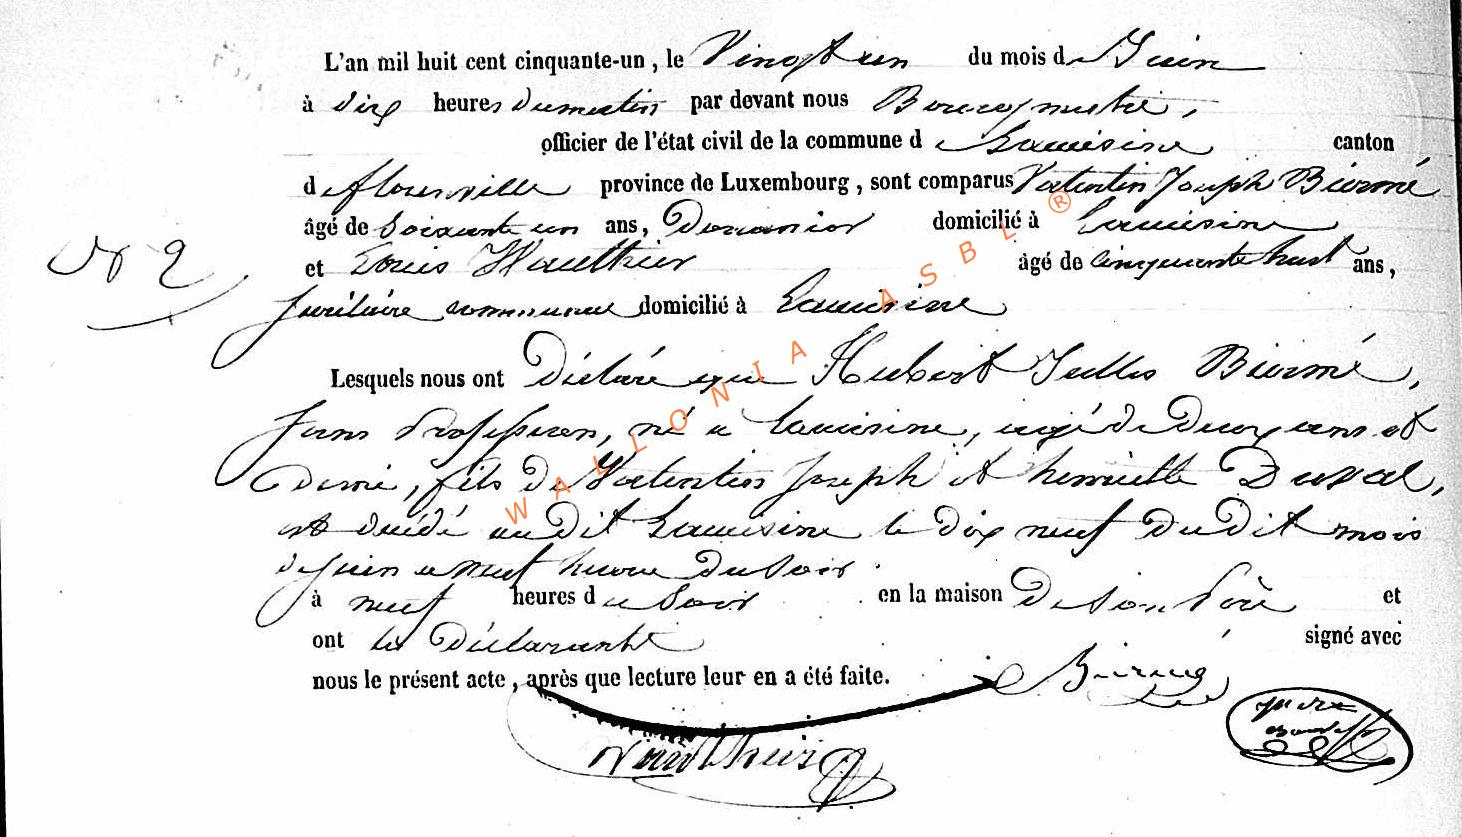 L'an mil huit cent cinquante-un, le Vingt un du mois de Juin
à dix heures du matin par devant nous Bourgmestre,
officier de l'état civil de la commune de Lacuisine canton
de florenville province de Luxembourg, sont comparus Valentin Joseph Biermé
âgé de Soixante un ans, Douanier domicilié à Lacuisine
N° 2
et Louis Wauthier âgé de Cinquante huit ans,
domicilié à Lacuisine
Lesquels nous ont Déclaré que Hubert Julles Biermé,
Sans Profession, né à Lacuisine, agé de Deux ans et
Demi, fils de Valentin Joseph et henriette Duval,
est décédé au dit Lacuisine le dix neuf du dit mois
de juin a neuf heure du soir.
à neuf heures du Soir en la maison De Son Père et
ont les Déclarants signé avec
nous le présent acte, après que lecture leur en a été faite. Biermé
Wauthier
WALLONIA ASBL ®